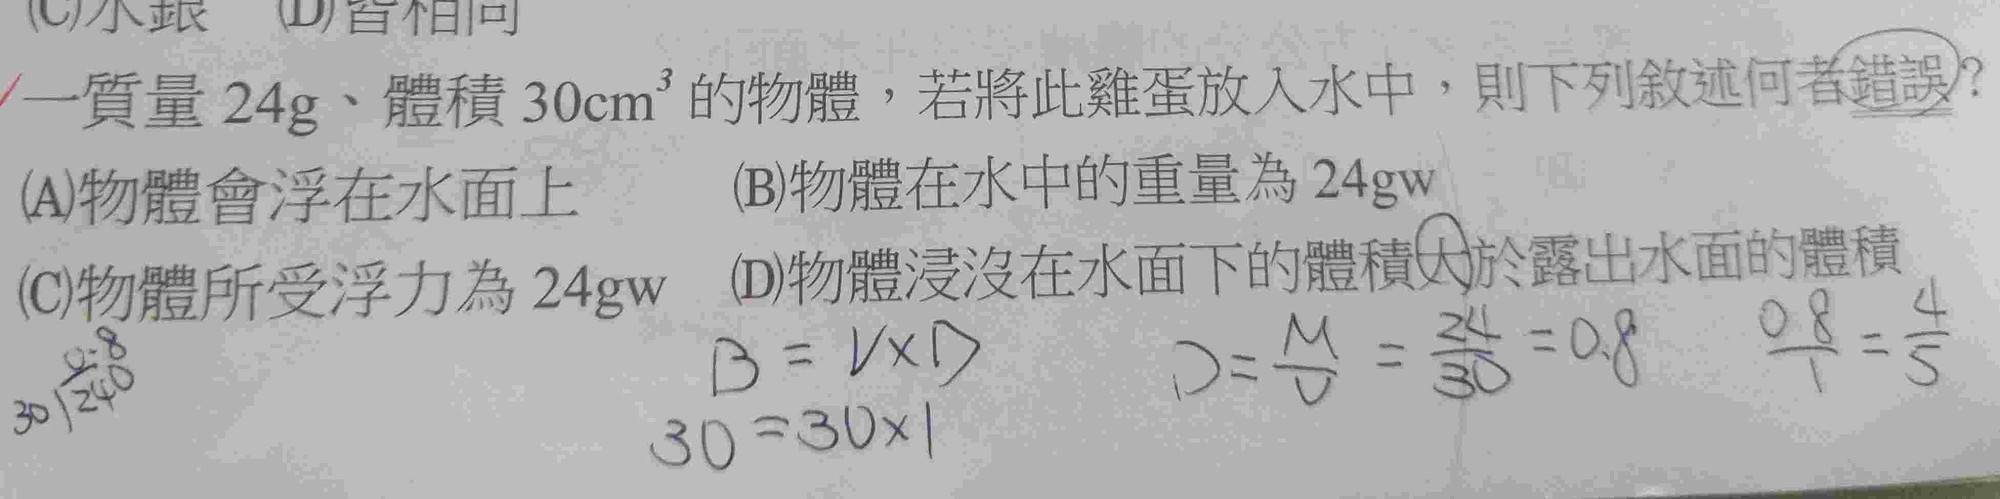 (C)水銀 (D)皆相同
一質量 24g、體積 30cm³ 的物體，若將此雞蛋放入水中，則下列敘述何者錯誤？
(A)物體會浮在水面上 (B)物體在水中的重量為 24gw
(C)物體所受浮力為 24gw (D)物體浸沒在水面下的體積大於露出水面的體積
B = V×D D = M/V = 24/30 = 0.8 0.8/1 = 4/5
0.8
30)240
30 = 30×1